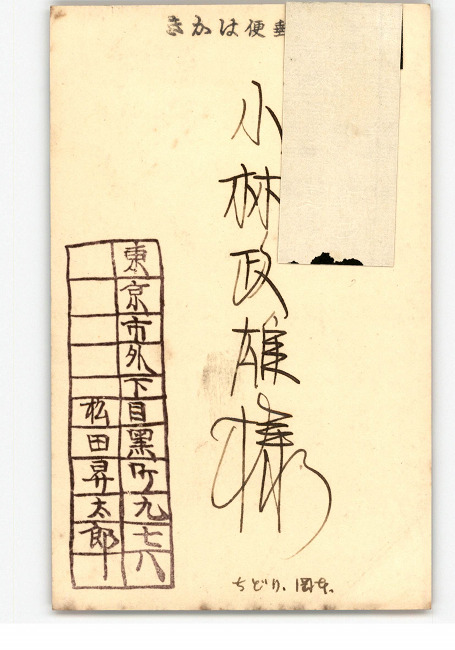 きかは便郵
小林政雄様
東京市外下目黒町九七八
松田昇太郎
ちどり、岡本